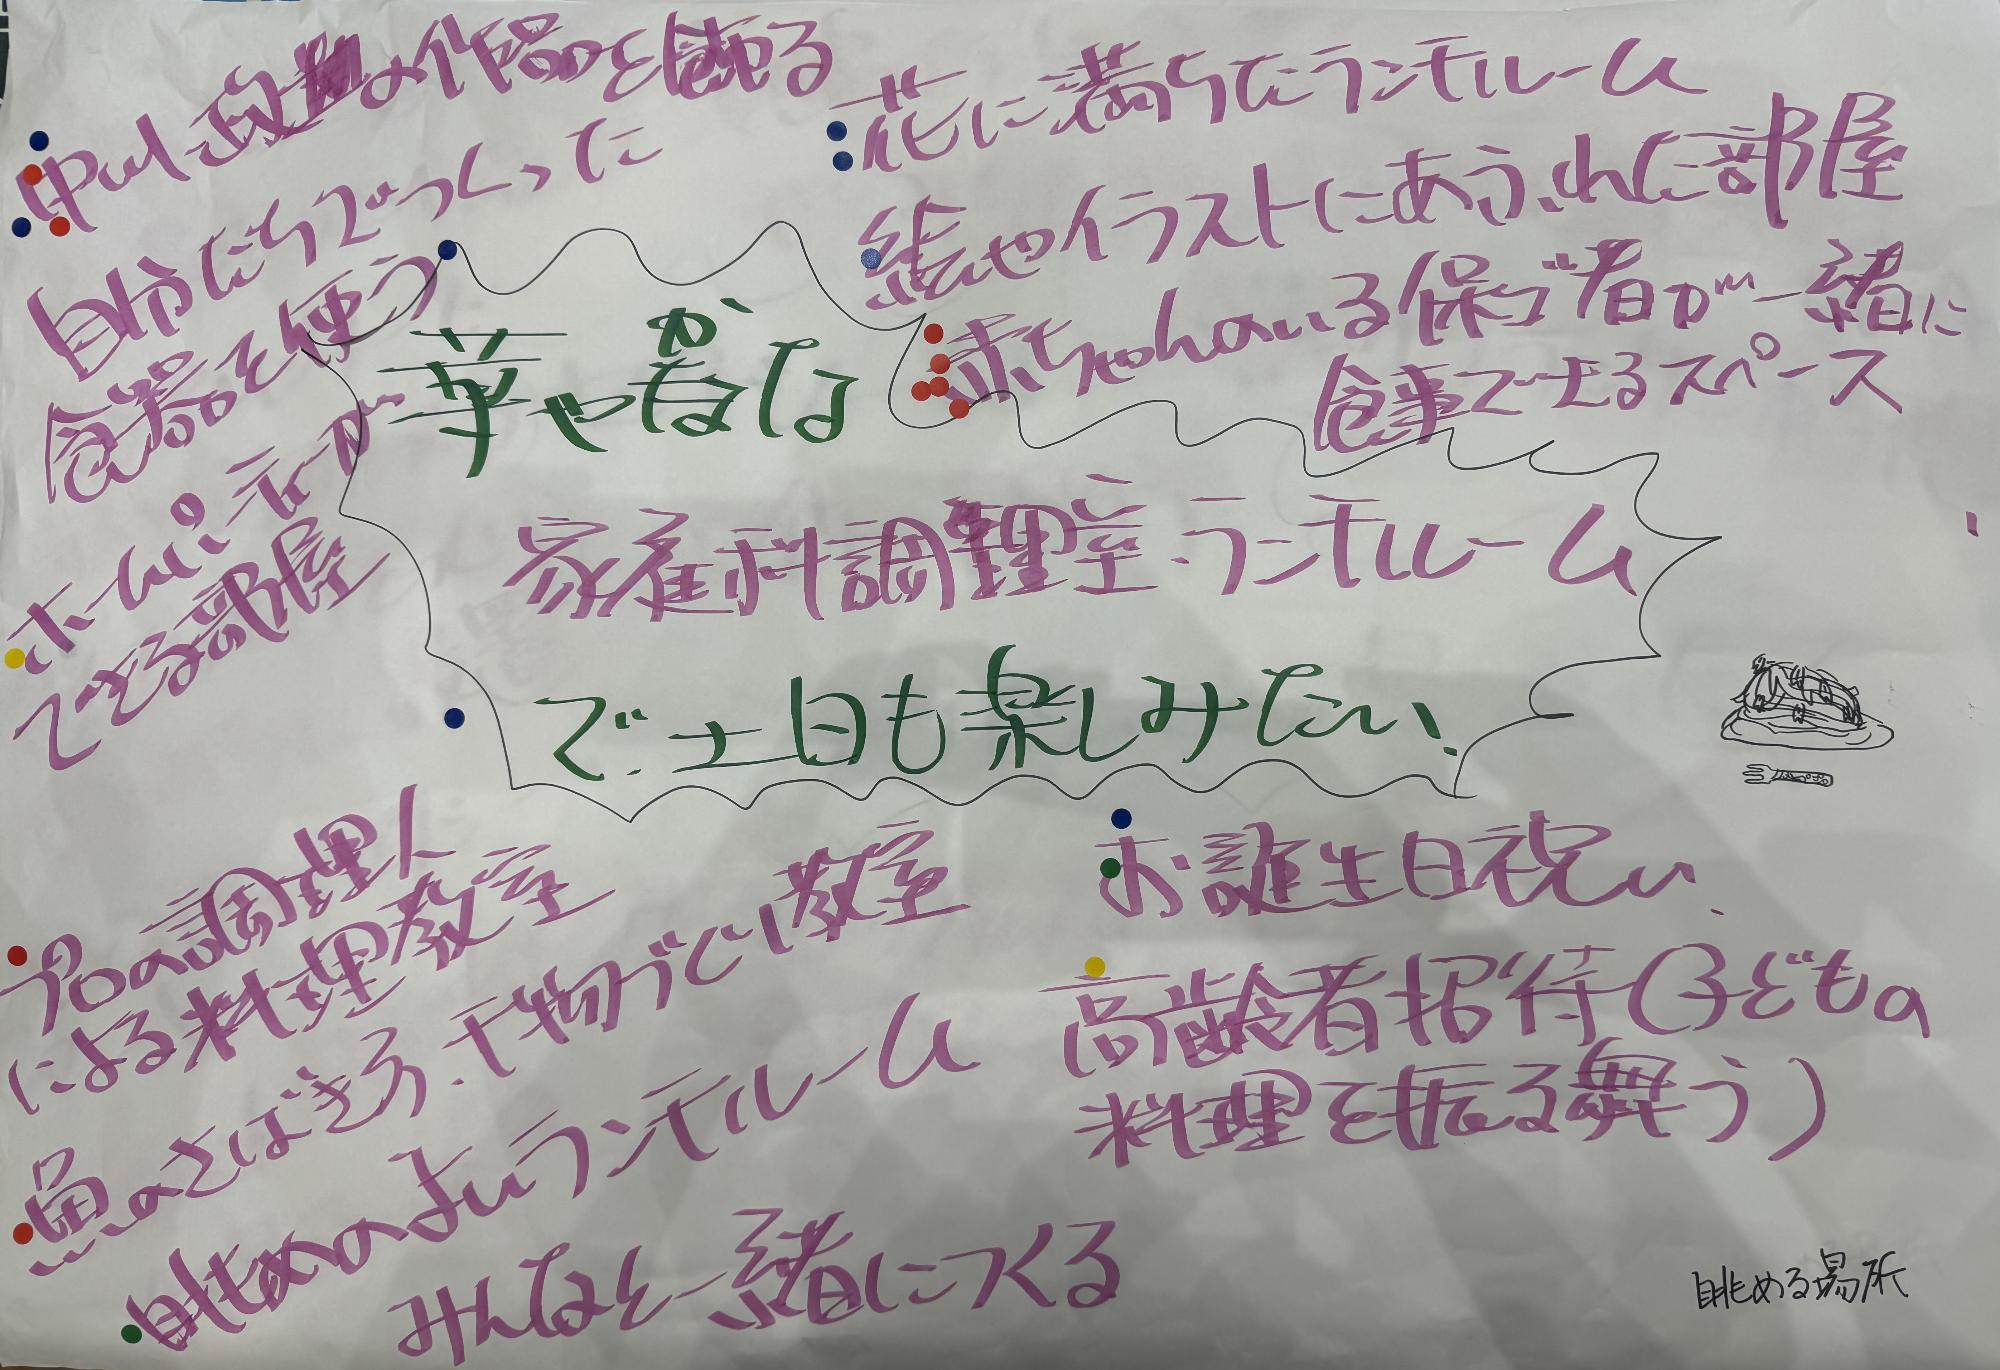 の作品を飾る
自分たちでつくった
食器を使う
ホームパーティーが
できる部屋
花に満ちたランチルーム
絵やイラストにあふれた部屋
赤ちゃんのいる保ゴ者が一緒に
食事できるスペース
華やかな
家庭科調理室・ランチルーム
で土日も楽しみたい!
プロの調理人
による料理教室
魚のさばき方、干物づくり教室
眺めのよいランチルーム
みんなと一緒につくる
お誕生日祝い
高齢者招待(子どもの
料理を振る舞う)
眺める場所